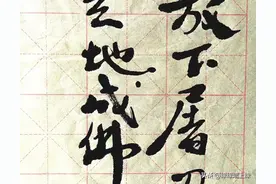 放下屠刀
立地成佛